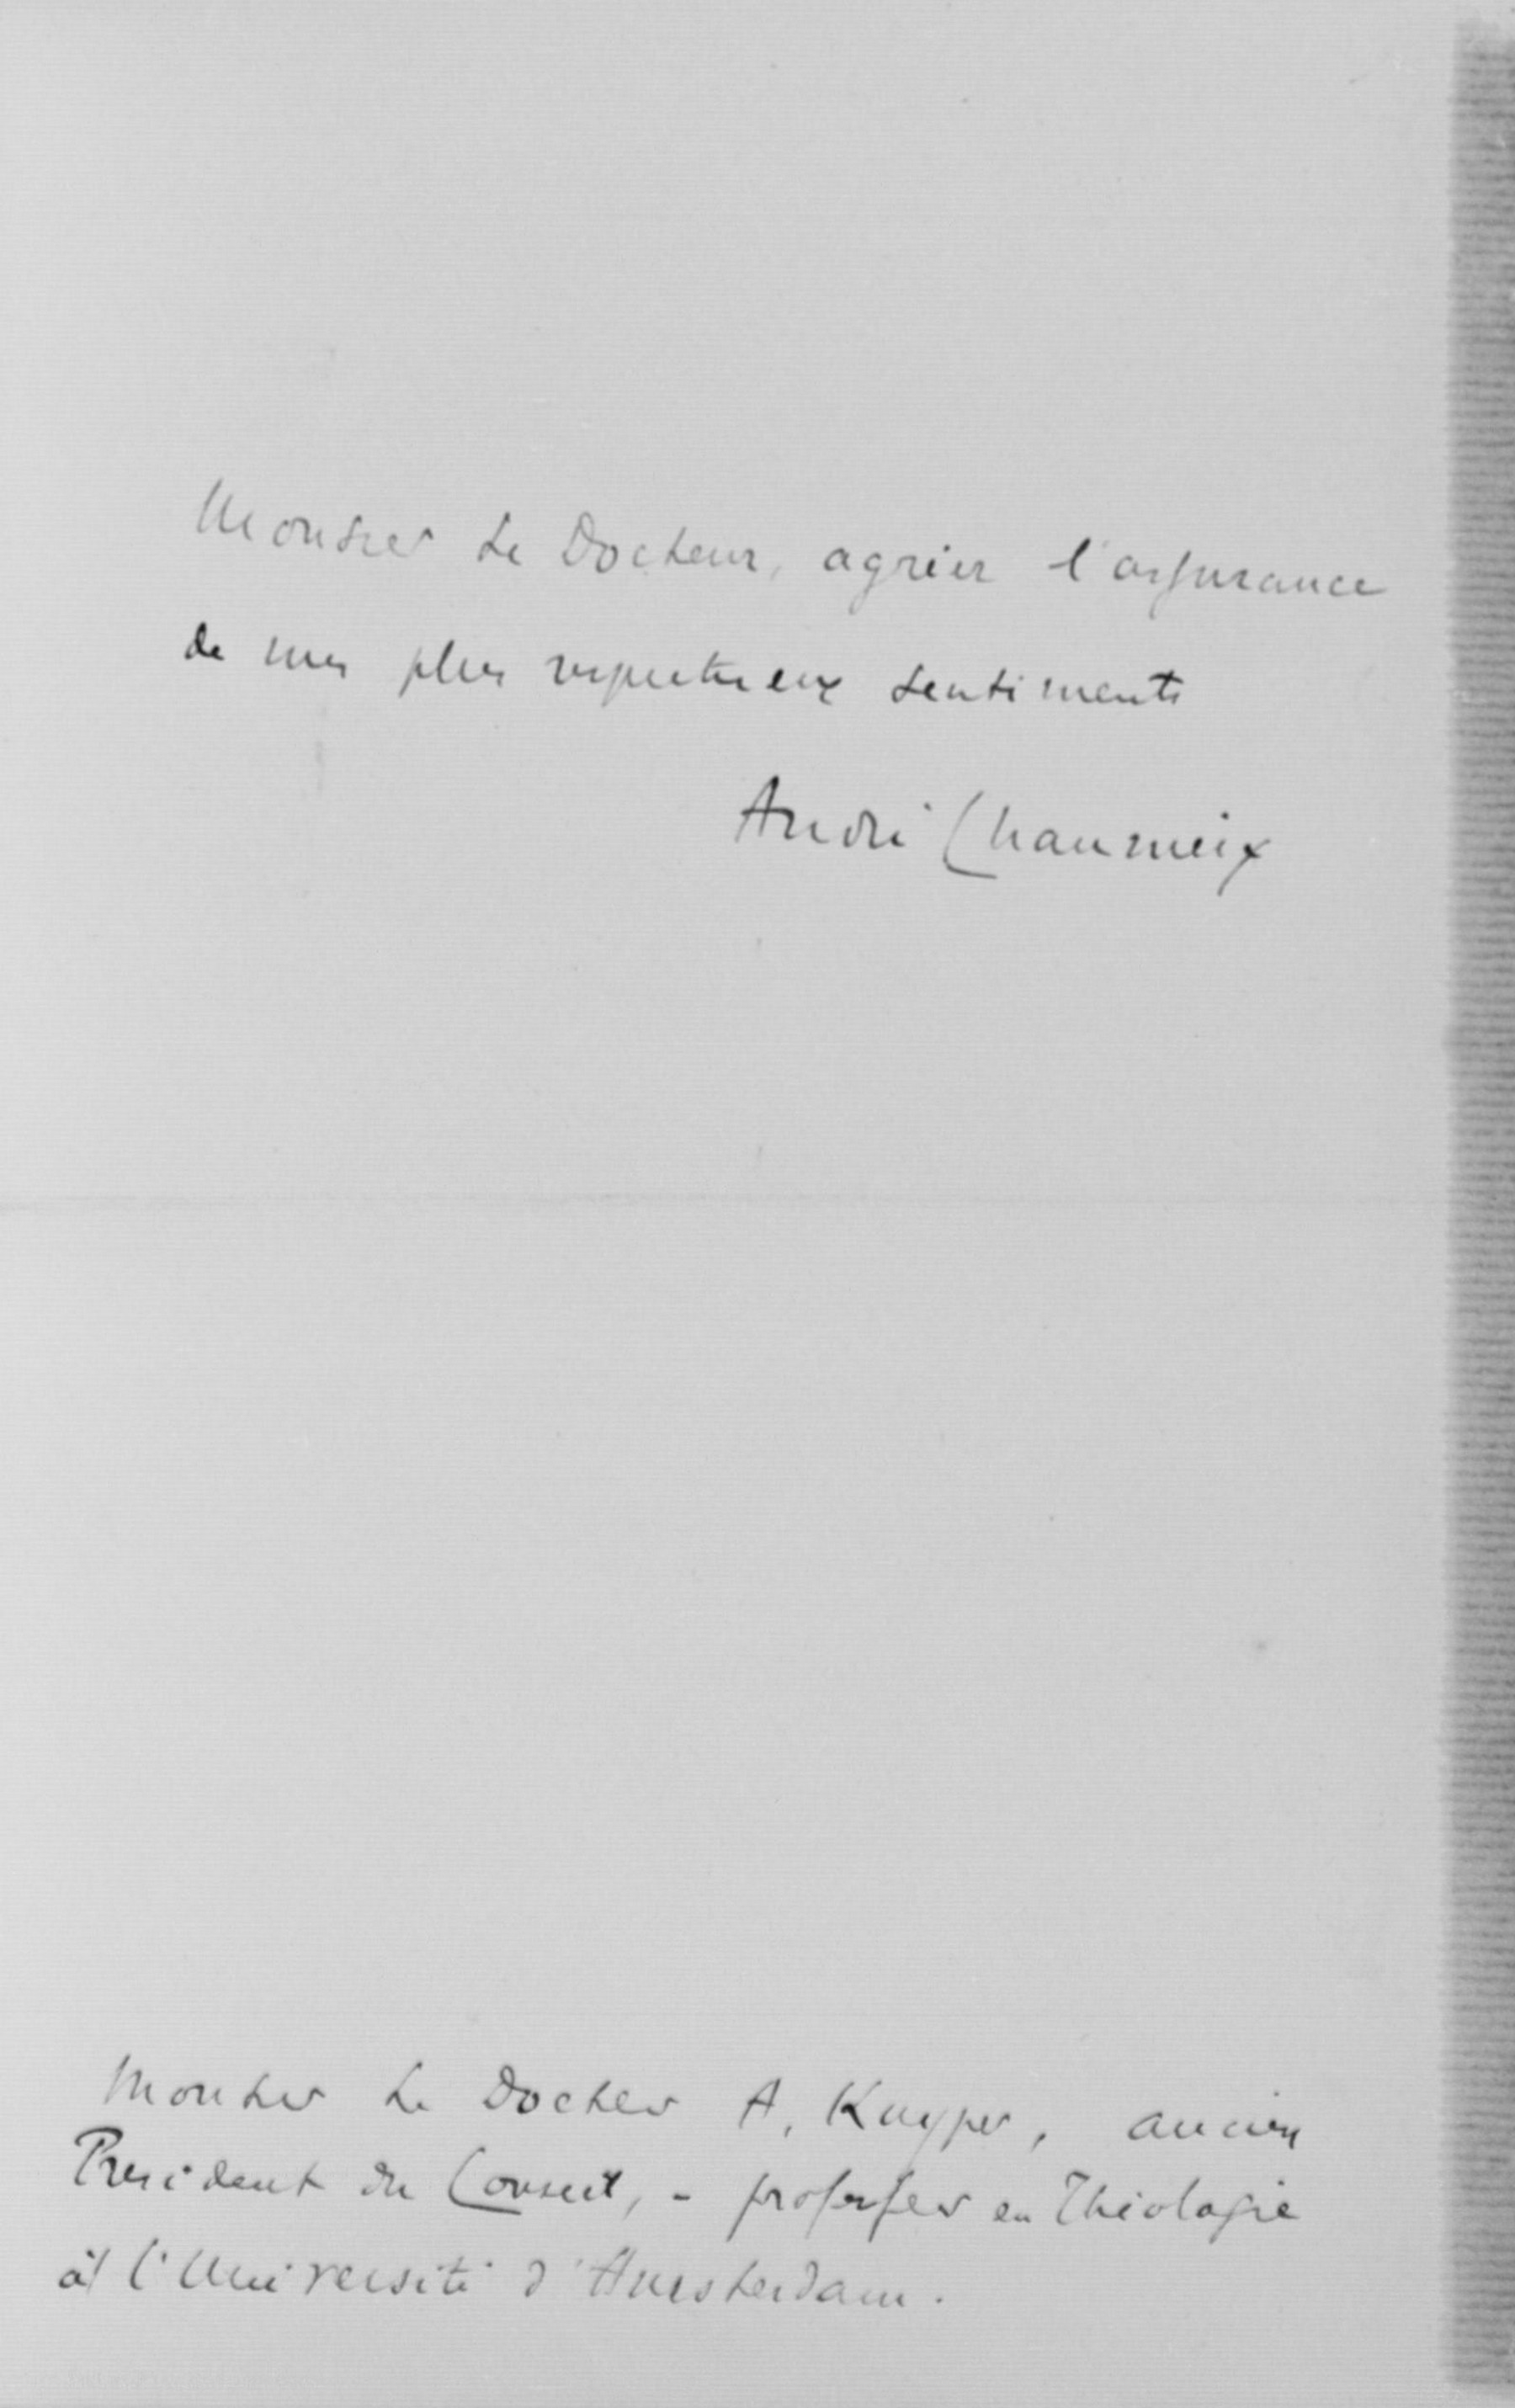 Monsieur Le Docteur, agréer l'assurance
de mes plus respectueux sentiments
André Chaumeix
Monsieur Le Docteur A. Kuyper, ancien
President du Conseil, - professeur en Théologie
à l'Université d'Amsterdam.